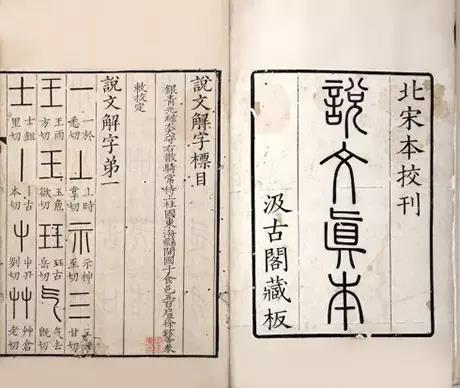 北宋本校刊
說文眞本
汲古閣藏板
說文解字標目
銀青光祿大夫守右散騎常侍上柱國東海縣開國子食邑五百戶徐鉉等奉
敕校定
說文解字弟一
一 一於悉切 丄 上時掌切 示 示神至切 三 甘切
王 王雨方切 玉 玉魚欲切 玨 玨古岳切 气 气去既切
士 士鉏里切 丨 丨古本切 屮 艸 艸倉老切